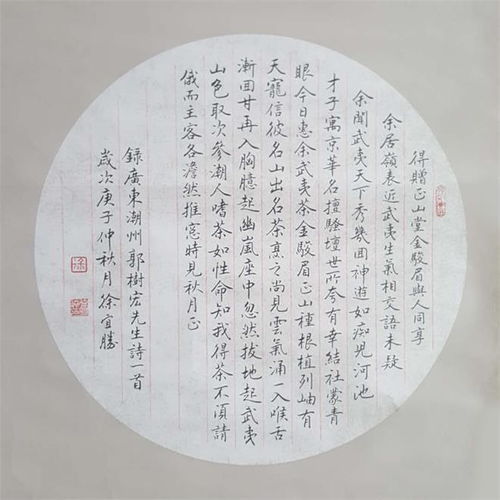 得贈正山堂金駿眉與人同享
余居嶺表近武夷生氣相交語未疑
余聞武夷天下秀幾回神遊如痴兒河池
才子寓京華名擅騷壇世所夸有幸結社蒙青
眼今日惠余武夷茶金駿眉正山種根植列岫有
天寵信彼名山出名茶烹之尚見雲氣涌一入喉舌
漸回甘再入胸臆起幽嵐座中忽然拔地起武夷
山色取次參潮人嗜茶如性命知我得茶不須請
俄而主客各澹然推窗時見秋月正
錄廣東潮州郭樹宏先生詩一首
歲次庚子仲秋月徐宜勝
徐